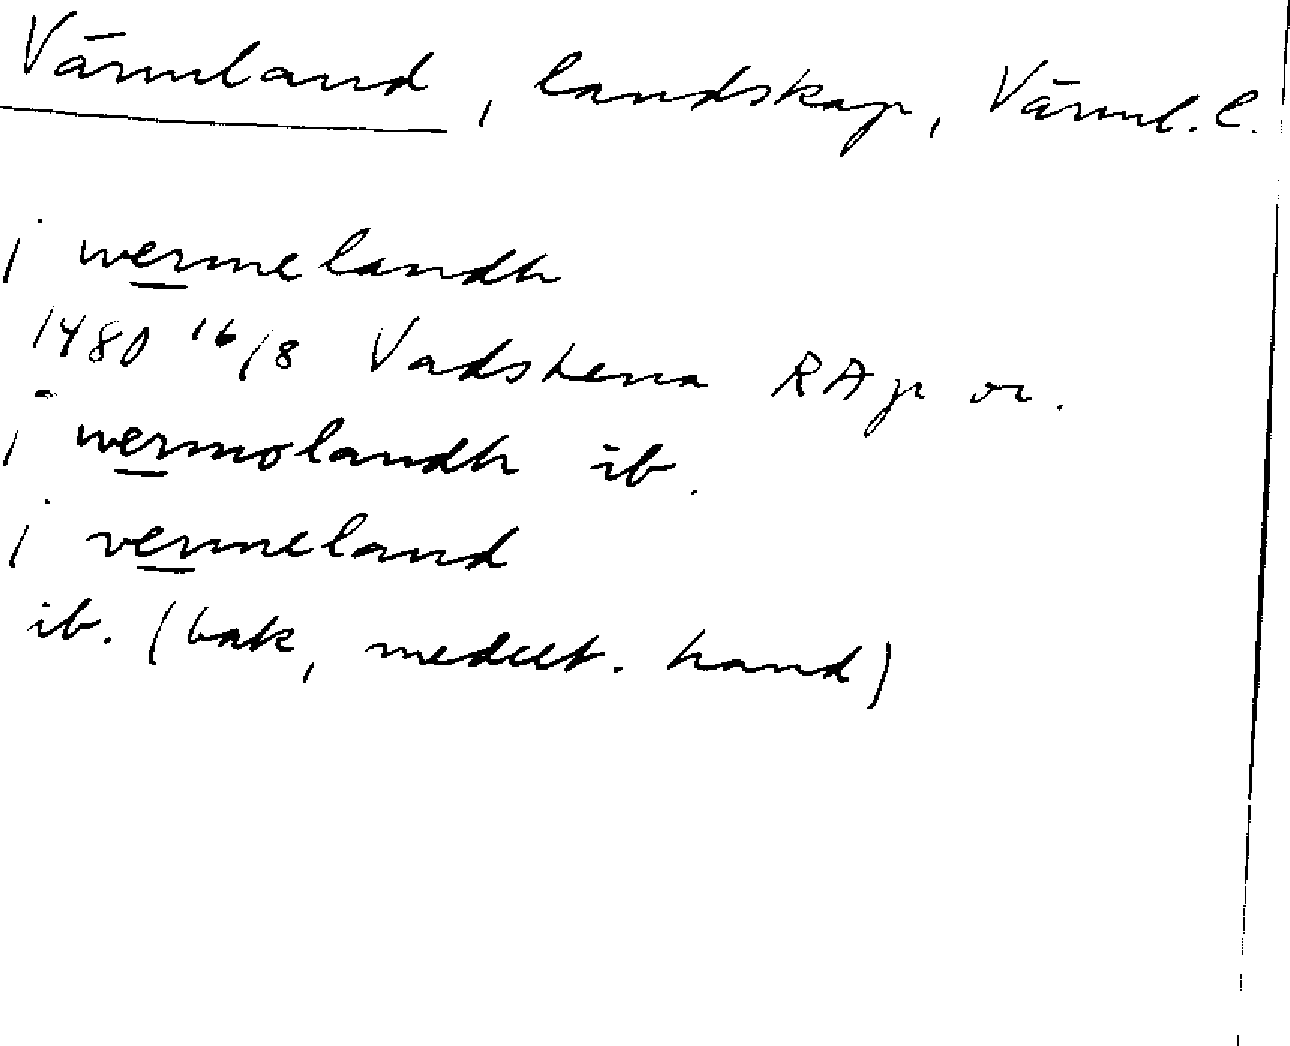 Värmland, landskap, Värml. l.
j wermelandh
1480 16/8 Vadstena RAp or.
j wermolandh ib.
j vermeland
ib. (bak, medelt. hand)